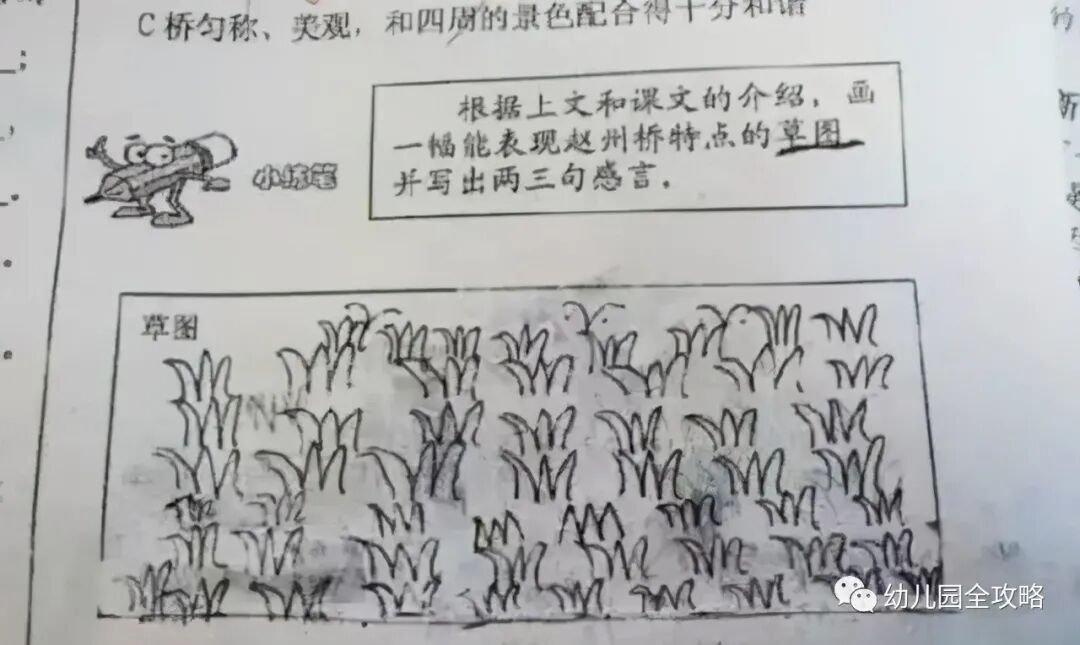 C 桥匀称、美观，和四周的景色配合得十分和谐
小练笔
根据上文和课文的介绍，画
一幅能表现赵州桥特点的草图
并写出两三句感言。
草图
幼儿园全攻略